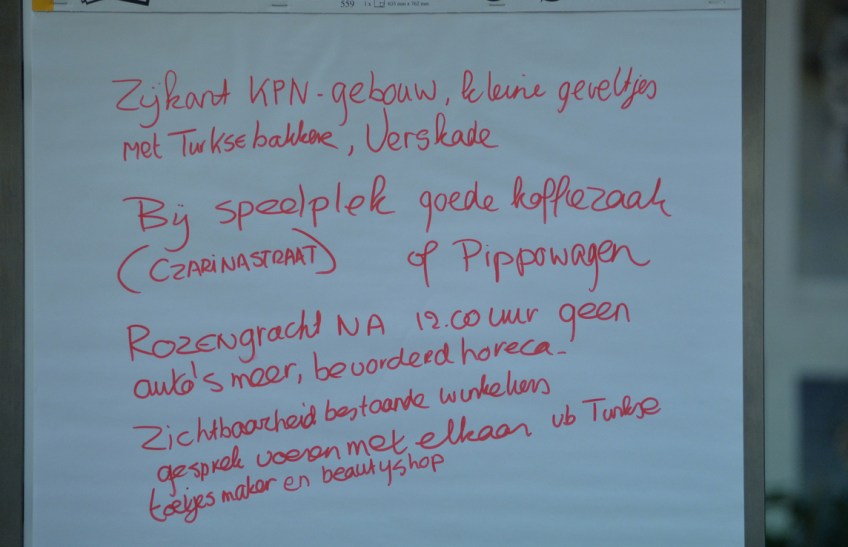 559
Zijkant KPN-gebouw, kleine geveltjes
met Turkse bakkerr, Verskade
Bij speelplek goede koffiezaak
(CZARINASTRAAT) of Pippowagen
ROZENgracht NA 12.00 uur geen
auto's meer, bevordeed horeca-
Zichtbaarheid bestaande winkeliers
gesprek voeren met elkaar vb Turkse
koekjesmaker en beautyshop